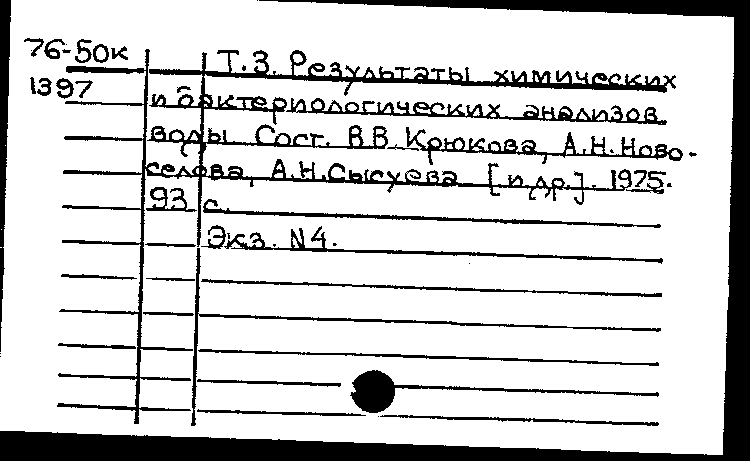 76-50к Т.3. Результаты химических
1397 и бактериологических анализов
воды Сост. В.В.Крюкова, А.Н.Ново-
селова, А.Н.Сысуева [и др.]. 1975.
93 с.
Экз. N4.